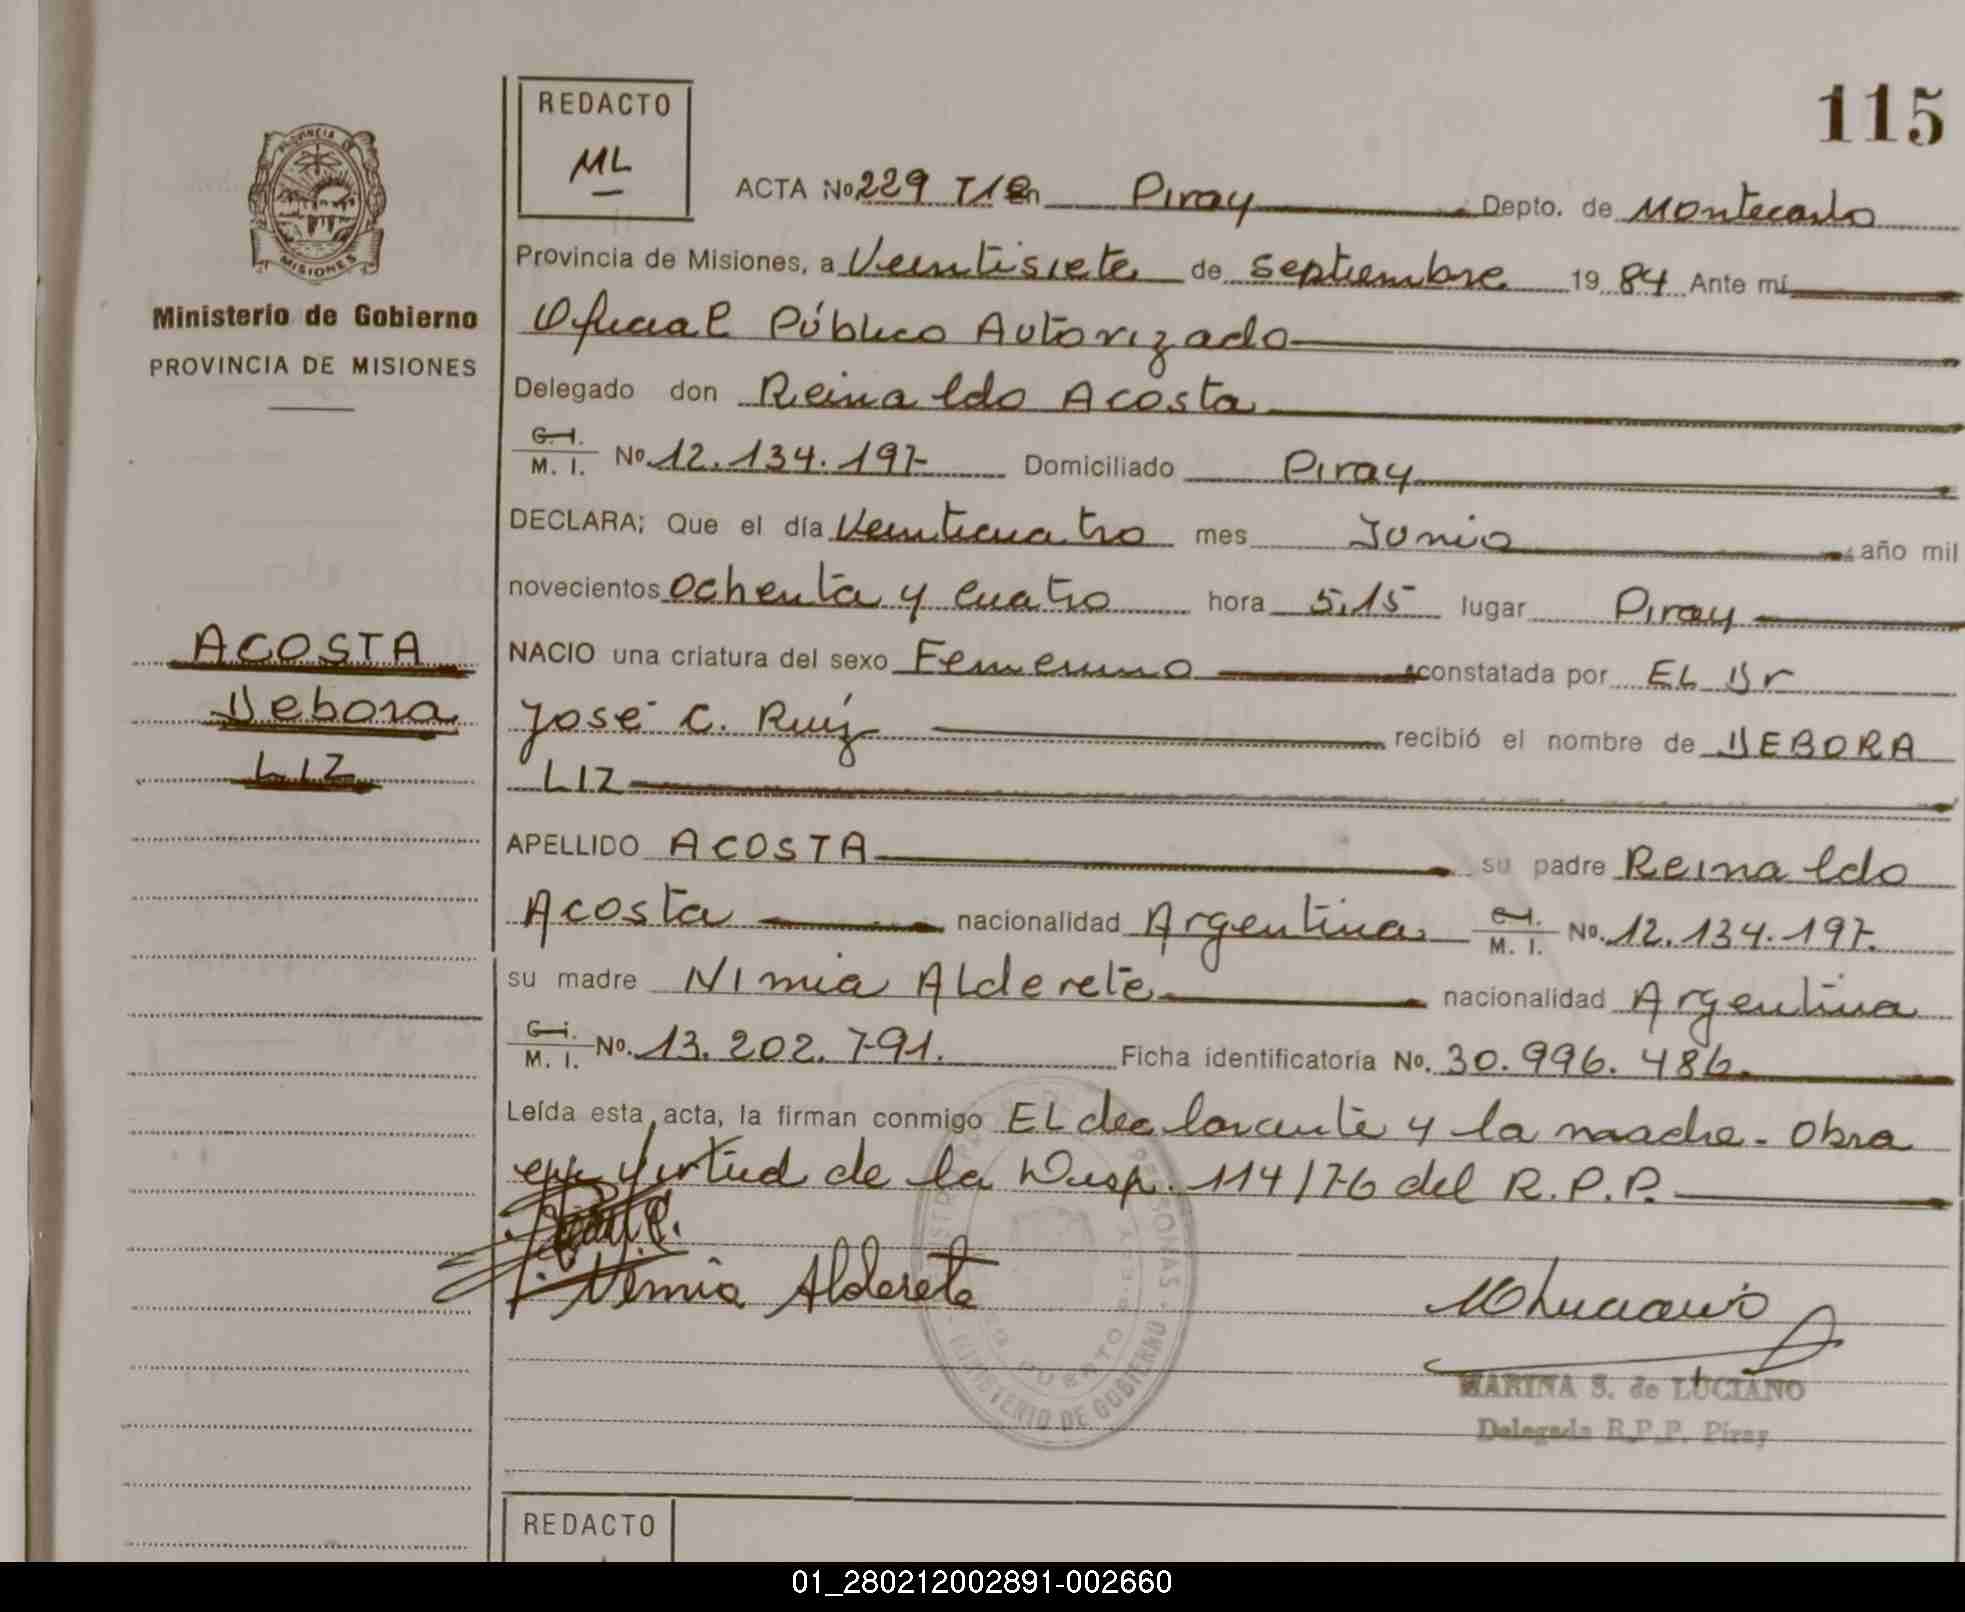 115
REDACTO
ML
ACTA No 229 T1 En Piray Depto. de Montecarlo
Provincia de Misiones, a Veintisiete de septiembre 19 84 Ante mí
Oficial Público Autorizado
Delegado don Reinaldo Acosta
C.I. M. I. No. 12.134.197 Domiciliado Piray
DECLARA; Que el día Veinticuatro mes Junio año mil
novecientos ochenta y cuatro hora 5,15 lugar Piray
NACIO una criatura del sexo Femenino constatada por EL Dr
José C. Ruíz recibió el nombre de DEBORA
LIZ
APELLIDO ACOSTA su padre Reinaldo
Acosta nacionalidad Argentina C.I. M. I. No. 12.134.197.
su madre Nimia Alderete nacionalidad Argentina
C.I. M. I. No. 13.202.791. Ficha identificatoria No. 30.996.486.
Leída esta acta, la firman conmigo EL declarante y la madre. Obra
en virtud de la Disp. 114/76 del R.P.P.
Nimia Alderete
MARINA S. de LUCIANO
Delegada R.P.P. Piray
PROVINCIA
MISIONES
Ministerio de Gobierno
PROVINCIA DE MISIONES
ACOSTA
Debora
LIZ
PERSONAS
MINISTERIO DE GOBIERNO
PUERTO
REDACTO
01_280212002891-002660